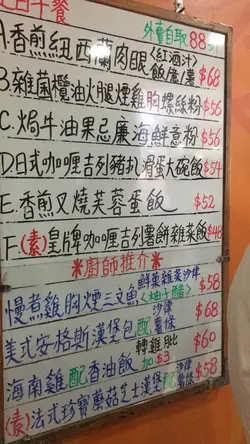 午餐
外賣自取88
A.香煎紐西蘭肉眼(紅酒汁)飯/意/薯 $68
B.雜菌欖油火腿煙雞胸螺絲粉 $56
C.焗牛油果忌廉海鮮意粉 $56
D.日式咖喱吉列豬扒滑蛋大碗飯 $54
E.香煎叉燒芙蓉蛋飯 $52
F.(素)皇牌咖喱吉列薯餅雜菜飯 $48
*廚師推介*
慢煮雞胸煙三文魚 鮮菓雜菜沙律<柚子醋> $58
美式安格斯漢堡包配沙律薯條 $68
海南雞配香油飯 轉雞髀加$3 $60
(素)法式珍寶蘑菇芝士漢堡配沙律薯條 $58